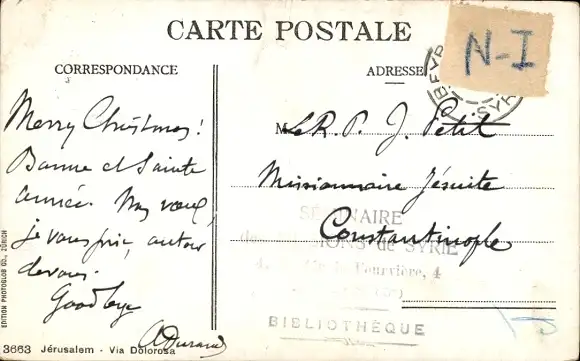 CARTE POSTALE
N-I
CORRESPONDANCE
ADRESSE
Merry Christmas!
Bonne et Sainte
année. Nos vœux,
je vous prie, autour
de vous.
Goodbye
ADurand
M Le R. P. J. Petit
Missionnaire Jésuite
Constantinople
SÉMINAIRE
MISSIONS de SYRIE
4, Fourvière, 4
BIBLIOTHÈQUE
EDITION PHOTOGLOB CO., ZÜRICH
3663 Jérusalem - Via Dolorosa